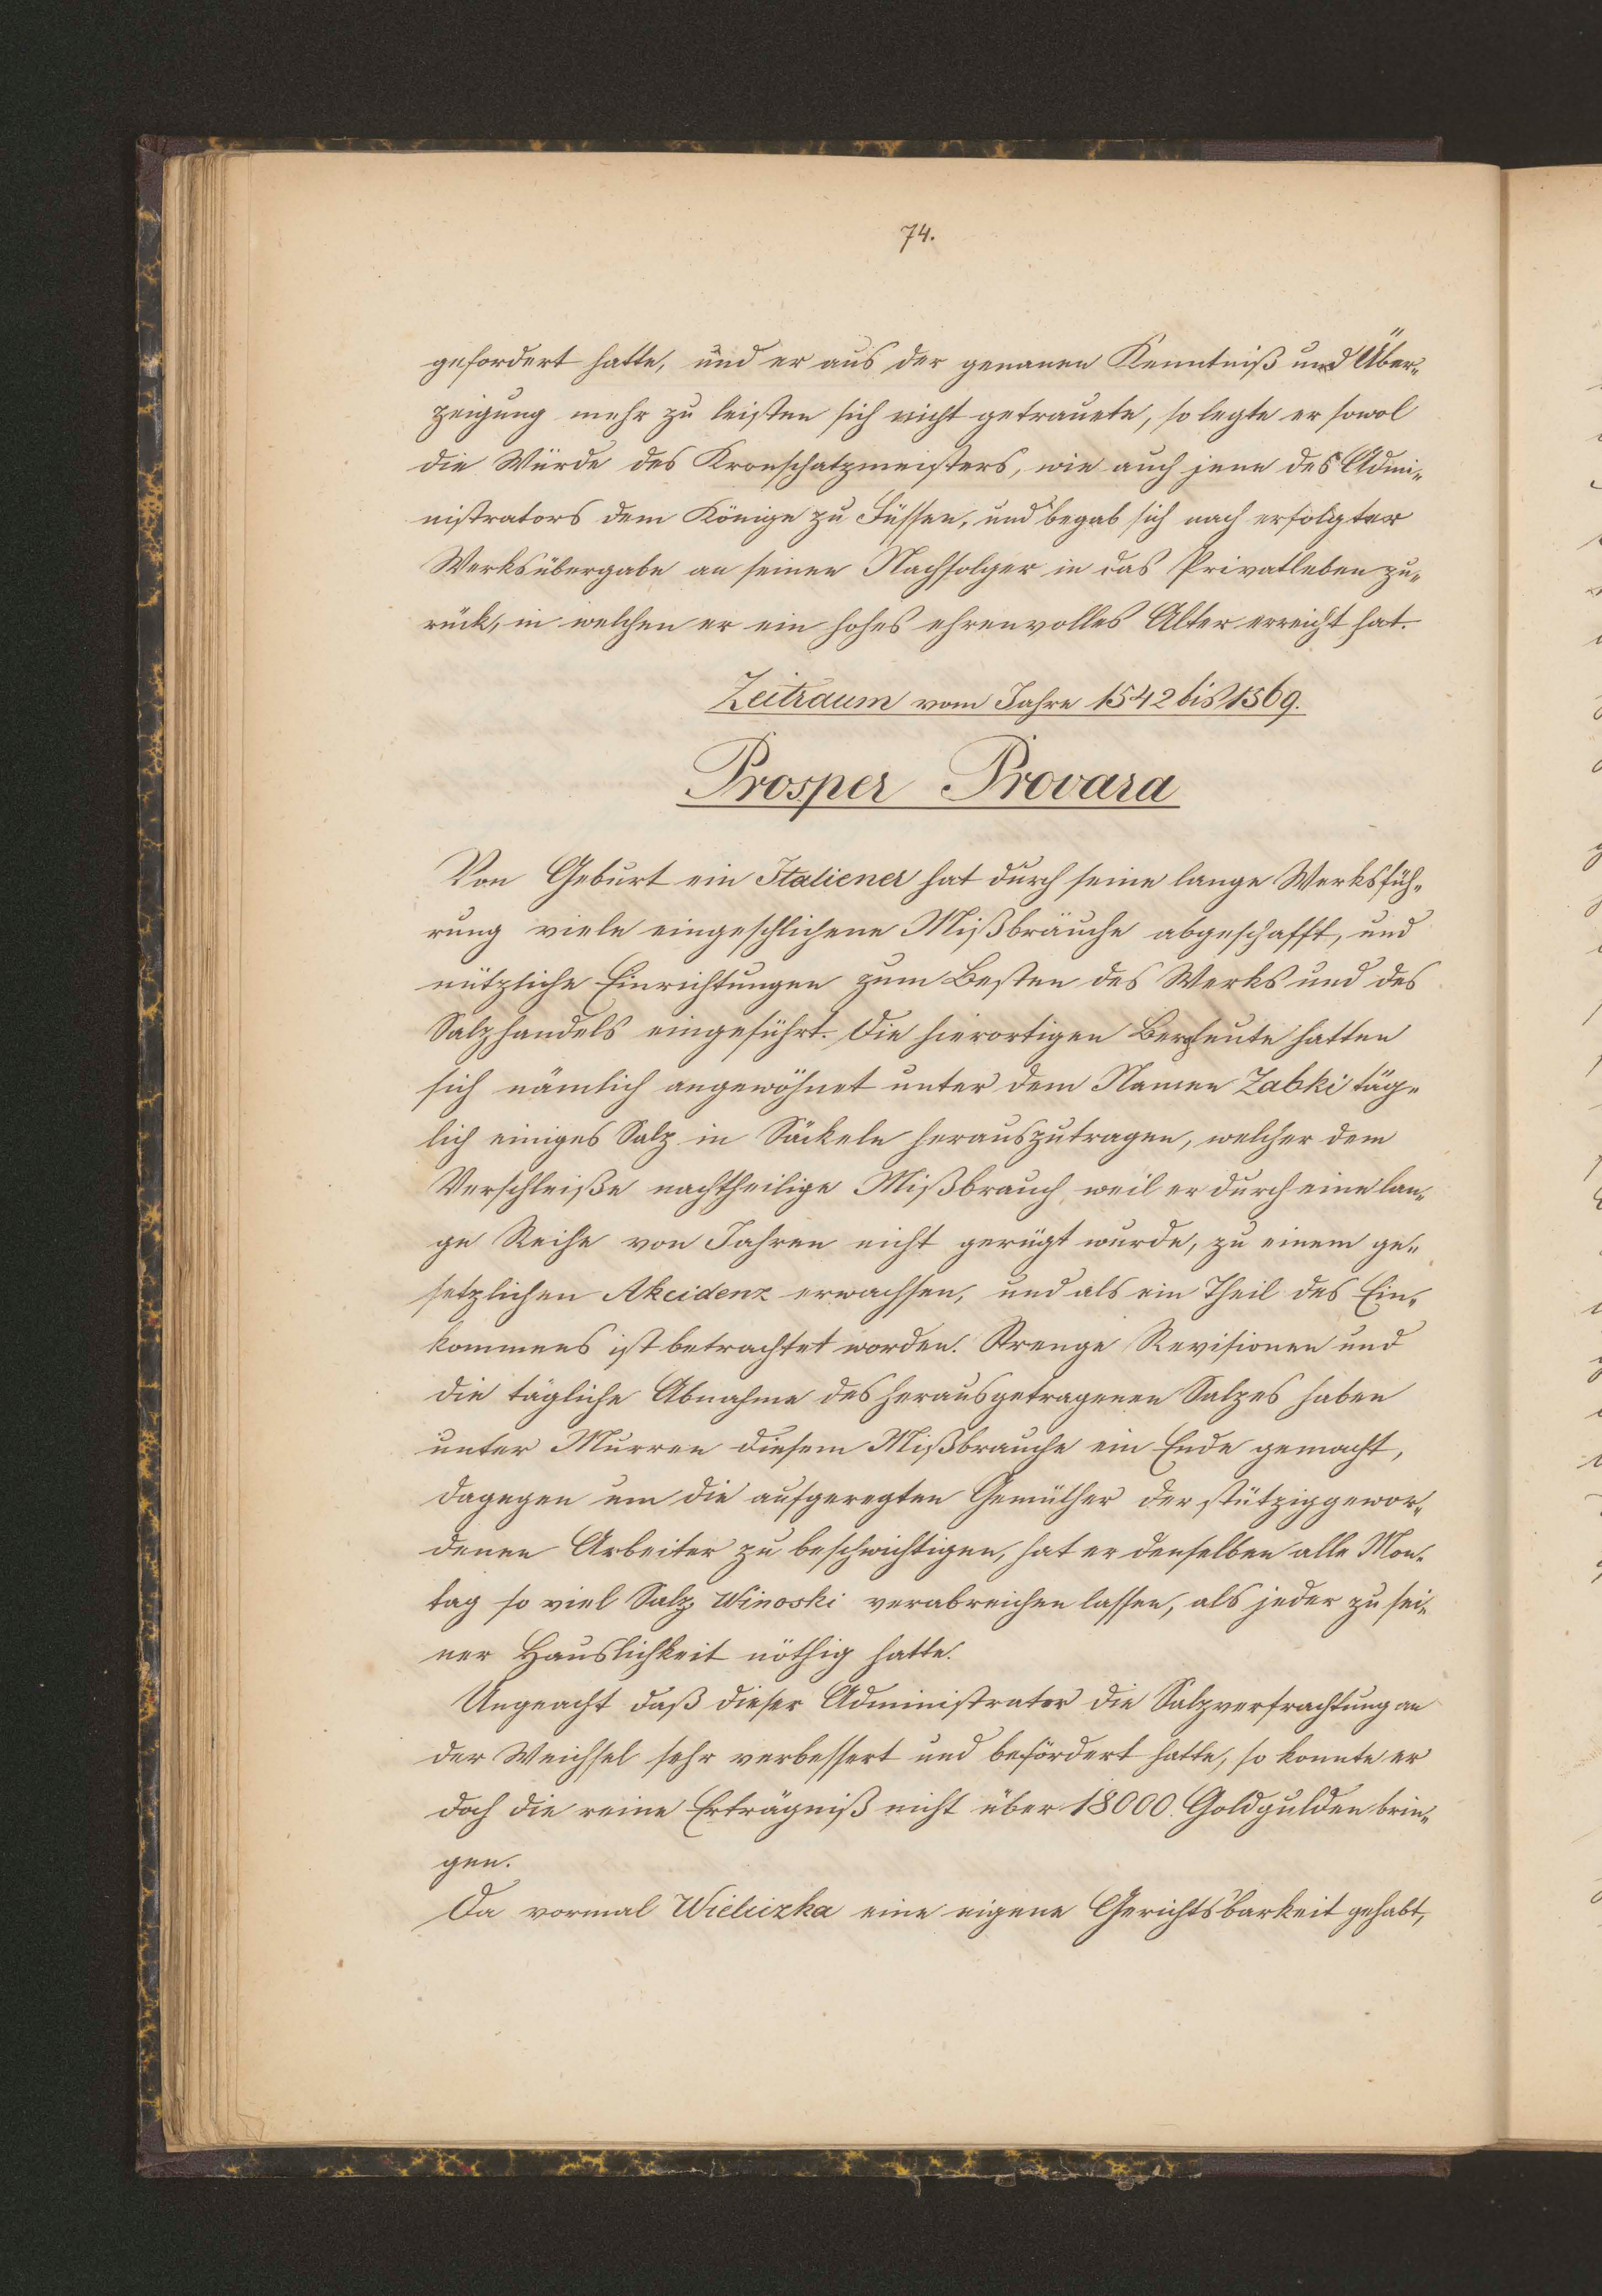 74.
gefordert hatte, und er aus der genauen Kenntniß und Über„
zeigung mehr zu leisten sich nicht getrauete, so legte er sowol
die Würde des Kronschatzmeisters, wie auch jene des Admi„
nistrators dem Könige zu Füssen, und begab sich nach erfolgter
Werksübergabe an seinen Nachfolger in das Privatleben zu„
rück, in welchen er ein hohes ehrenvolles Alter erreicht hat.
Zeitraum vom Jahre 1542 bis 1569.
Prosper Provara
Von Geburt ein Italiener hat durch seine lange Werksfüh„
rung viele eingeschlichene Mißbräuche abgeschafft, und
nützliche Einrichtungen zum Besten des Werks und des
Salzhandels eingeführt. Die hierortigen Bergleute hatten
sich nämlich angewöhnet unter dem Namen Zabki täg„
lich einiges Salz in Säckeln herauszutragen, welcher dem
Verschleiße nachtheilige Mißbrauch weil er durch eine lan„
ge Reihe von Jahren nicht gerügt wurde, zu einem ge„
setzlichen Akcidenz erwachsen, und als ein Theil des Ein„
kommens ist betrachtet worden. Strenge Revisionen und
die tägliche Abnahme des herausgetragenen Salzes haben
unter Murren diesem Mißbrauche ein Ende gemacht,
dagegen um die aufgeregten Gemüther der stützig gewor„
denen Arbeiter zu beschwichtigen, hat er denselben alle Mon„
tag so viel Salz Winoski verabreichen lassen, als jeder zu sei„
ner Hauslichkeit nöthig hatte.
Ungeacht daß dieser Administrator die Salzverfrachtung an
der Weichsel sehr verbessert und befördert hatte, so konnte er
doch die reine Erträgniß nicht über 18000 Goldgulden brin„
gen.
Da vormal Wieliczka eine eigene Gerichtsbarkeit gehabt,